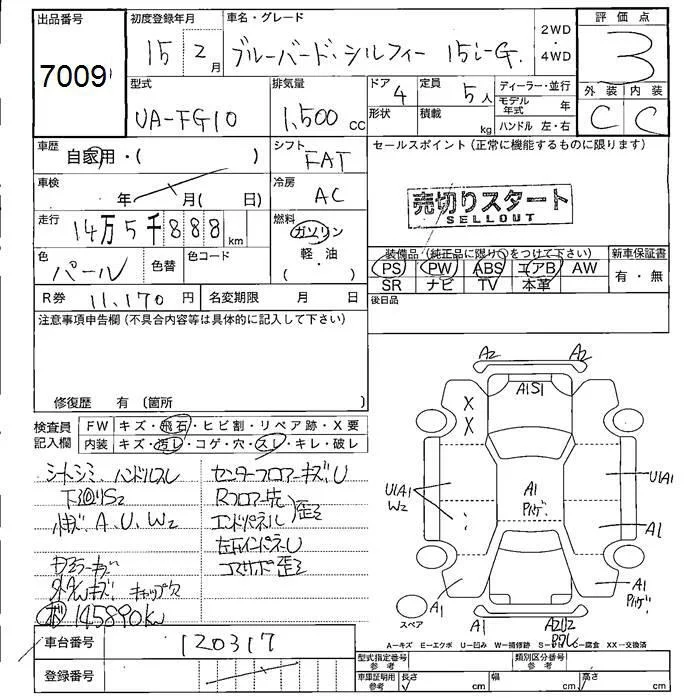 出品番号
7009
初度登録年月
15 2月
車名・グレード
ブルーバード・シルフィー 15i-G.
2WD
・
4WD
評価点
3
外装 内装
C C
型式
UA-FG10
排気量
1,500 cc
ドア
4
形状
定員
5人
積載
kg
ディーラー・並行
モデル年式 年
ハンドル 左・右
車歴
自家用・( )
シフト
FAT
車検
年 月( 日)
冷房
AC
走行
14万5千888 km
燃料
ガソリン
・
軽・油
( )
色
パール
色替
色コード
R券 11,170 円
名変期限 月 日
セールスポイント (正常に機能するものに限ります)
売切りスタート
SELLOUT
装備品 (純正品に限り○をつけて下さい)
PS PW ABS エアB AW
SR ナビ TV 本革
新車保証書
有・無
後日品
注意事項申告欄 (不具合内容等は具体的に記入して下さい)
修復歴 有 (箇所
検査員記入欄
FW キズ・飛石・ヒビ割・リペア跡・X要
内装 キズ・汚レ・コゲ・穴・スレ・キレ・破レ
シートシミ、ハンドルスレ
下廻りS2
キズ、A、U、W2
キャップ欠
145890km
センターフロアーキズ、U
Rフロアー先
エンドパネル 歪ミ
左右インパネU
コアサポ歪ミ
A2 A2
A1S1
X
X
U1A1
W2
A1
U1A1
A1
A1
A1
A1
スペア
A1
A2U2
A-キズ E-エクボ U-凹み W-補修跡 S-サビ C-腐食 XX-交換済
車台番号
120317
登録番号
型式指定番号
参考
類別区分番号
参考
車庫証明用
参考
長さ cm
幅 cm
高さ cm